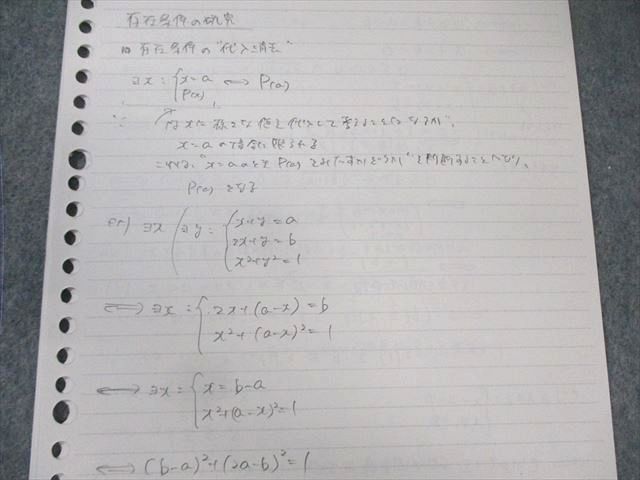 存在条件の研究
存在条件の"代入消去"
∃x: { x=a ⟺ P(a)
P(x)
∵ はxに様々な値を代入して考えることになるが、
x=aの場合に限られる
これは、"x=aのとき P(a) をみたすかどうか"を判断することになり、
P(a) となる
ex) ∃x ( ∃y: { x+y=a
2x+y=b
x²+y²=1
⟺ ∃x: { 2x+(a-x)=b
x²+(a-x)²=1
⟺ ∃x: { x=b-a
x²+(a-x)²=1
⟺ (b-a)²+(2a-b)²=1